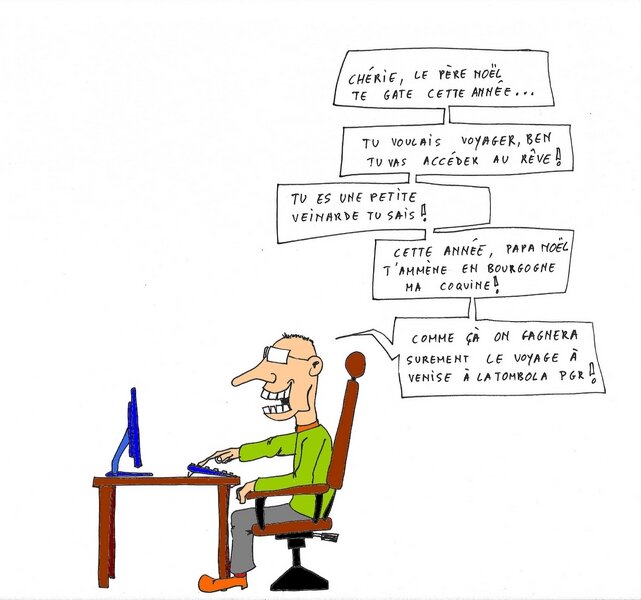 CHÉRIE, LE PÈRE NOËL
TE GATE CETTE ANNÉE...
TU VOULAIS VOYAGER, BEN
TU VAS ACCÉDER AU RÊVE!
TU ES UNE PETITE
VEINARDE TU SAIS!
CETTE ANNÉE, PAPA NOËL
T'AMMÈNE EN BOURGOGNE
MA COQUINE!
COMME ÇÀ ON GAGNERA
SUREMENT LE VOYAGE À
VENISE À LA TOMBOLA PGR!